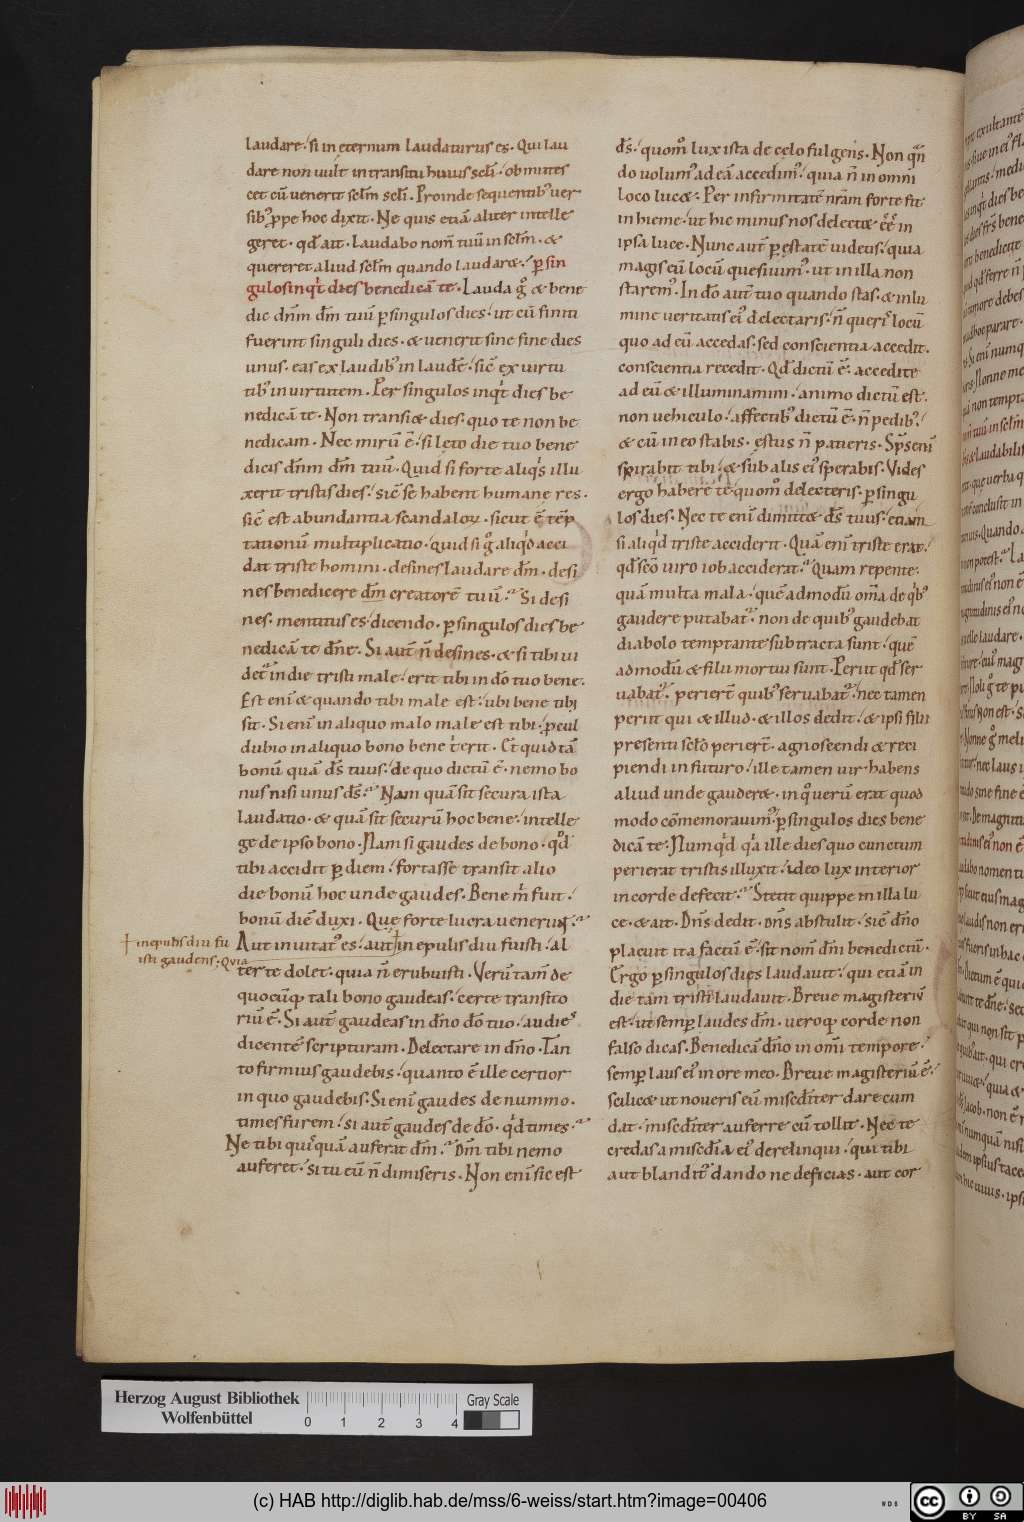 laudare. si in eternum laudaturus es. Qui lau
dare non uult in transitu huius scłi. obmutes
cet cū uenerit scłm scłi. Proinde sequentib; uer
sib; ꝓpe hoc dixit. Ne quis etiā aliter intelle
geret. qđ ait. Laudabo nom̄ tuū in scłm. &
quereret aliud scłm quando laudar&. ꝑ sin
gulos inqt dies benedicā te. Lauda g̊ & bene
dic dn̄m dm̄ tuū ꝑ singulos dies. ut cū finiti
fuerint singuli dies. & uenerit sine fine dies
unus. eas ex laudib; in laudē. sic̄ ex uirtu
tib; in uirtutem. Per singulos inqt dies be
nedicā te. Non transi& dies. quo te non be
nedicam. Nec mirū ē. si leto die tuo bene
dicis dn̄m dm̄ tuū. Quid si forte aliqs illu
xerit tristis dies. sic̄ se habent humane res.
sic̄ est abundantia scandaloꝝ. sicut ē tēp
tationū multiplicatio. quid si g̊ aliqd acci
dat triste homini. desines laudare dm̄. desi
nes benedicere dm̄ creatorē tuū. Si desi
nes. mentitus es dicendo. ꝑ singulos dies be
nedicā te dn̄e. Si aut̄ n̄ desines. & si tibi ui
det᷑ in die tristi male. erit tibi in dō tuo bene.
Est eni̅ & quando tibi male est. ubi bene tibi
sit. Si eni̅ in aliquo malo male est tibi. ꝓcul
dubio in aliquo bono bene t̄ erit. Et quid tā
bonū quā ds̄ tuus. de quo dictū ē. nemo bo
nus nisi unus ds̄. Nam quā sit secura ista
laudatio. & quā sit securū hoc bene. intelle
ge de ipso bono. Nam si gaudes de bono. qđ
tibi accidit ꝑ diem. fortasse transit alio
die bonū hoc unde gaudes. Bene m̄ fuit.
bonū diē duxi. Que forte lucra uenerunt.
Aut inuitat᷑ es. aut in epulis diu fuisti. al
in epulis diu fu
isti gaudens. Quia
terte dolet. quia n̄ erubuisti. Verū tam̄ de
quocūq; tali bono gaudeas. certe transito
riū ē. Si aut̄ gaudeas in dn̄o dō tuo. audies
dicentē scripturam. Delectare in dn̄o. Tan
to firmius gaudebis. quanto ē ille certior
in quo gaudebis. Si eni̅ gaudes de nummo.
times furem. si aut̄ gaudes de dō. qd times.
Ne tibi quisquā auferat dm̄. Dm̄ tibi nemo
auferet. si tu eū n̄ dimiseris. Non eni̅ sic est
ds̄. quom̊ lux ista de celo fulgens. Non qn̄
do volum; ad eā accedim;. quia n̄ in omni
loco luc&. Per infirmitatē nrā forte sit
in hieme. ut hic minus nos delect& ēē in
ipsa luce. Nunc aut̄ ꝑ estatē uidetis. quia
magis eū locū quesiuim;. ut in illa non
starem;. In dō aut̄ tuo quando stas. & in lu
mine ueritatis ei; delectaris. n̄ queris locū
quo ad eū accedas. sed conscientia accedit.
conscientia recedit. Qđ dictū ē. accedite
ad eū & illuminamini. animo dictū est.
non uehiculo. affectib; dictū ē. n̄ pedib;.
& cū in eo stabis. estus n̄ patieris. Sps̄ eni̅
spirabit tibi. & sub alis ei; sperabis. Vides
ergo habere te quom̊ delecteris. ꝑ singu
los dies. Nec te eni̅ dimitt& ds̄ tuus. etiam
si aliqd triste acciderit. Quā eni̅ triste erat.
qđ scō uiro iob acciderat. Quam repente.
quā multa mala. quēadmodū om̄a de qb;
gaudere putabat᷑. non de quib; gaudebat
diabolo temptante subtracta sunt. quē
admodū & filii mortui sunt. Periit qđ ser
uabat᷑. perier̄t quib; seruabat᷑. nec tamen
periit qui & illud. & illos dedit. & ipsi filii
presenti sclo perier̄t. agnoscendi & reci
piendi in futuro. ille tamen uir habens
aliud unde gauder&. in quo uerū erat quod
modo cōmemorauim;. ꝑ singulos dies bene
dicā te. Numqd qa ille dies quo cunctum
perierat tristis illuxit. ideo lux interior
in corde defecit. Stetit quippe in illa lu
ce. & ait. Dn̄s dedit. Dn̄s abstulit. sic̄ dn̄o
placuit ita factū ē. sit nom̄ dn̄i benedictū.
Ergo ꝑ singulos dies laudauit. qui etiā in
die tam tristi laudauit. Breue magisteriū
est. ut semꝑ laudes dm̄. ueroq; corde non
falso dicas. Benedicā dn̄o in om̄i tempore.
semꝑ laus ei; in ore meo. Breue magisteriū ē.
scilic& ut noueris eū miscdīter dare cum
dat. miscdīter auferre cū tollit. Nec te
credas a miscdīa ei; derelinqui. qui tibi
aut blandit᷑ dando ne deficias. aut cor
Herzog August Bibliothek
Wolfenbüttel
0 1 2 3 4
Gray Scale
(c) HAB http://diglib.hab.de/mss/6-weiss/start.htm?image=00406
cc BY SA